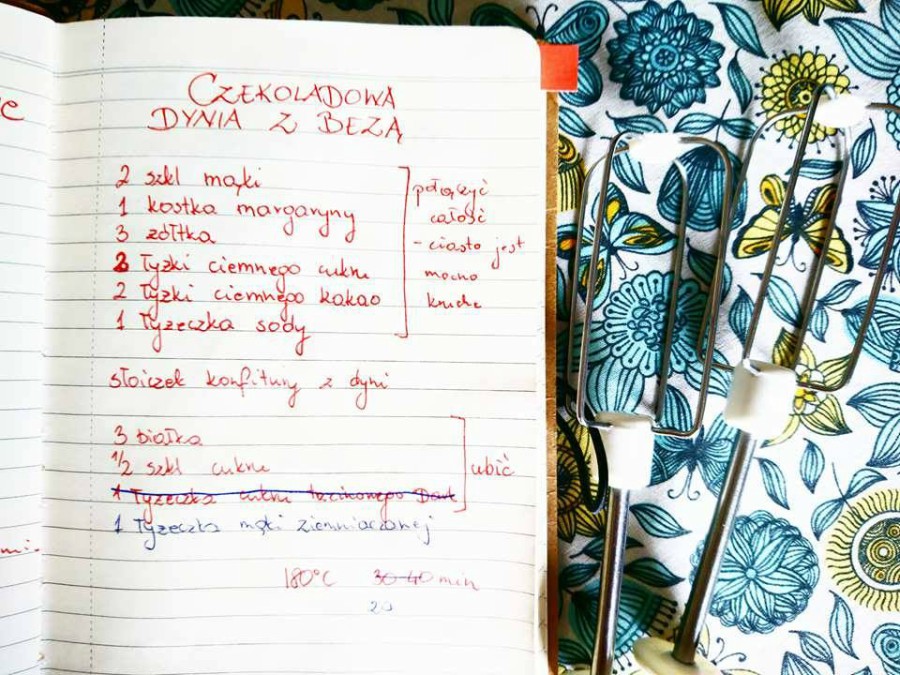 CZEKOLADOWA
DYNIA Z BEZĄ
2 szkl mąki
1 kostka margaryny
3 żółtka
3 łyżki ciemnego cukru
2 łyżki ciemnego kakao
1 łyżeczka sody
połączyć
całość
- ciasto jest
mocno
kruche
słoiczek konfitury z dyni
3 białka
1/2 szkl cukru
ubić
1 łyżeczka cukru
1 łyżeczka mąki ziemniaczanej
180°C 30-40 min
20